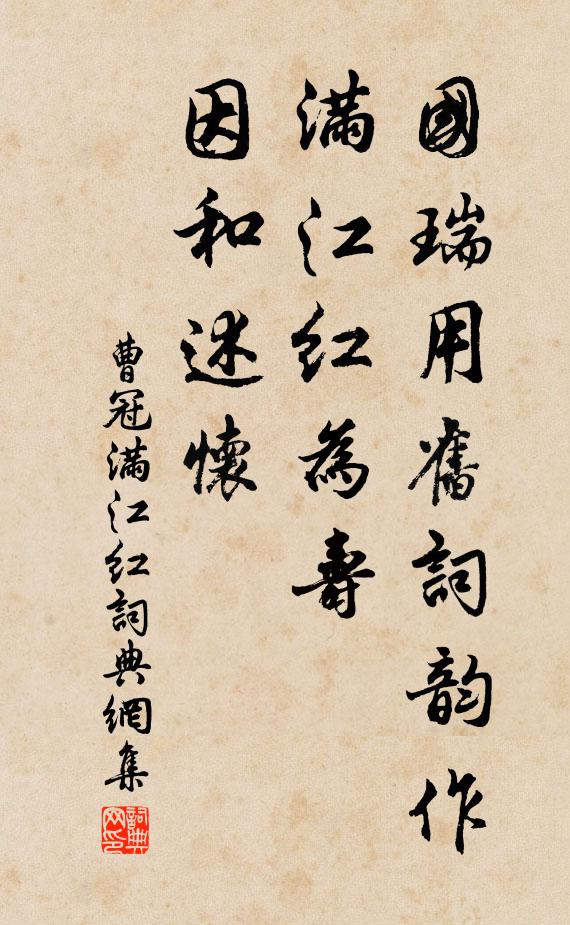 國瑞用舊詞韵作
滿江紅為壽
因和述懷
曹冠滿江紅詞典網集
詞典网印